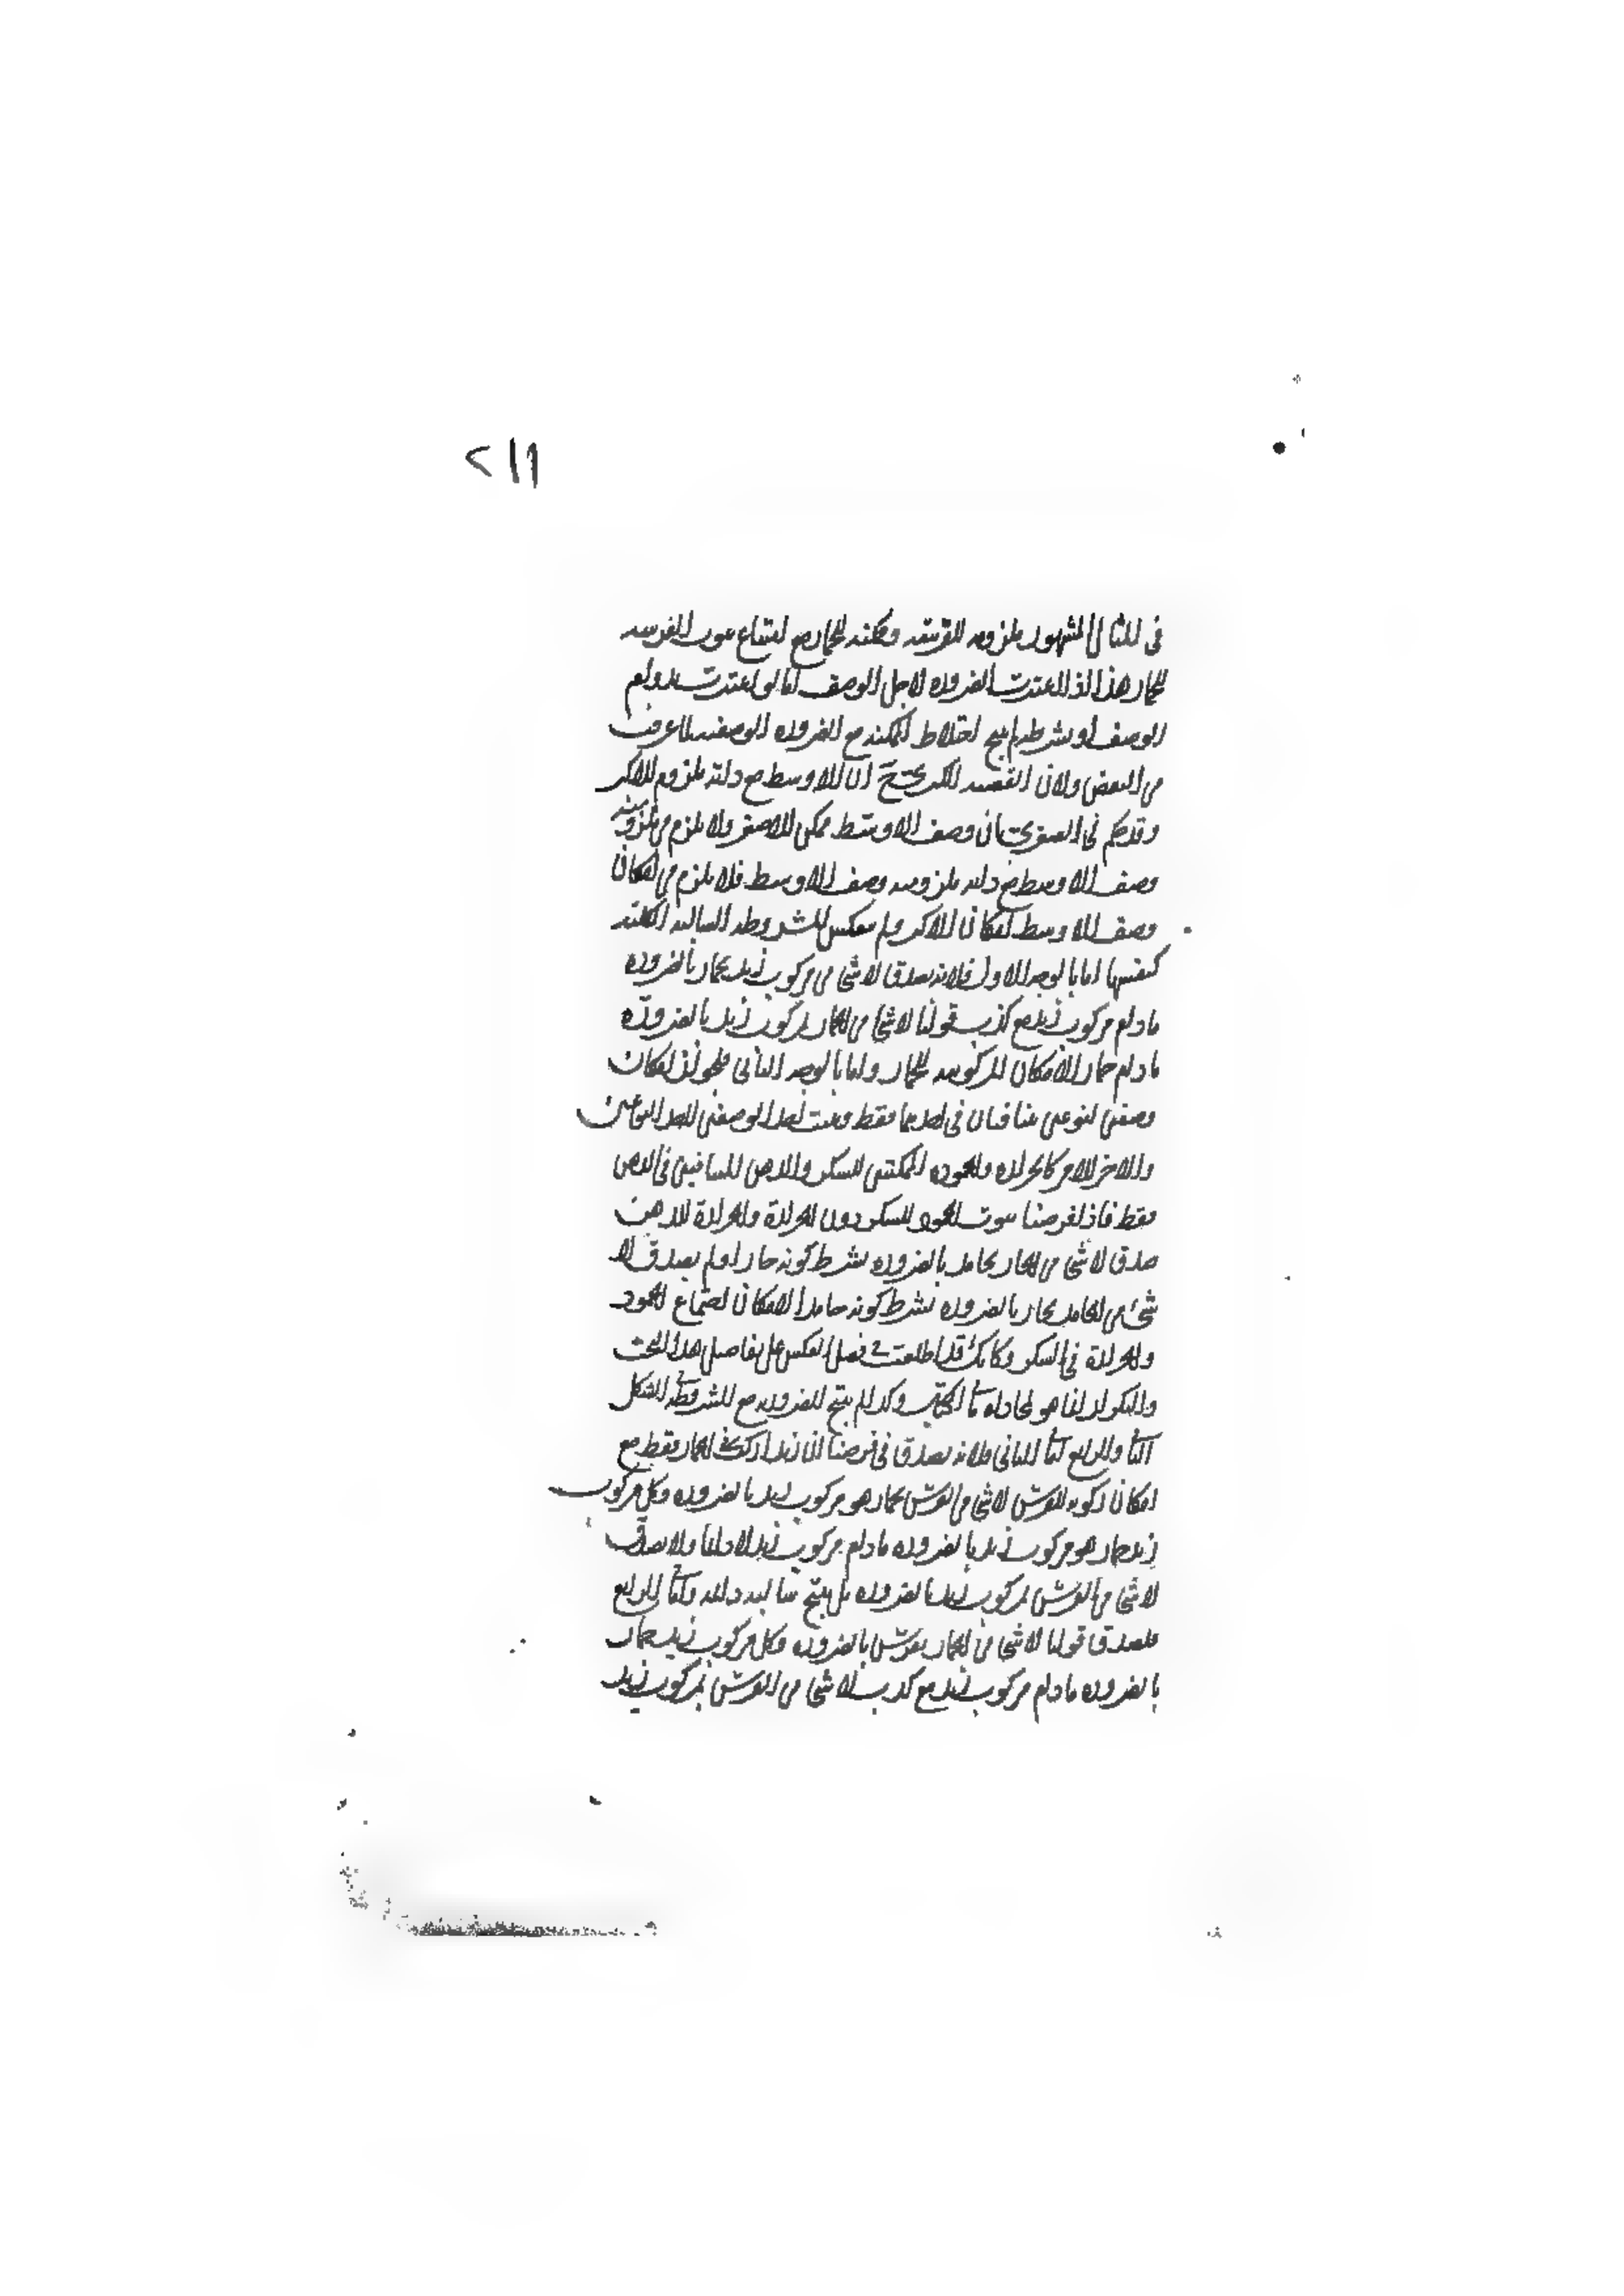 ٢١١
في المثال المشهور ملزومه للفرسية وممكنة للحمار مع امتناع ثبوت الفرسية
للحمار هذا اذا اعتبرت الضرورة لاجل الوصف اما لو اعتبرت بدوام
الوصف او بشرطه لم ينتج اختلاط الممكنة مع الضرورة الوصفية لما عرفت
من النقض ولان القضية الكبرى ان الاوسط مع ذاته ملزوم للاكبر
وقد حكم في الصغرى بان وصف الاوسط ممكن للاصغر ولا يلزم من ملزومية
وصف الاوسط مع ذاته ملزومية وصف الاوسط فلا يلزم من امكان
وصف الاوسط امكان الاكبر ولم تنعكس المشروطة السالبة الكلية
كنفسها اما بالوجه الاول فلانه يصدق لا شئ من مركوب زيد بحمار بالضرورة
مادام مركوب زيد مع كذب قولنا لا شئ من الحمار بمركوب زيد بالضرورة
مادام حمارا لامكان المركوبية للحمار واما بالوجه الثاني فلجواز امكان
وصفين لنوعين متنافيان في احدهما فقط وثبت احد الوصفين لاحد النوعين
والاخر للاخر كالحرارة والجمود الممكنين للسكر والدهن المتنافيين في الدهن
فقط فاذا فرضنا ثبوت الجمود للسكر دون الحرارة والحرارة للدهن
صدق لا شئ من الحار بجامد بالضرورة بشرط كونه حارا ولم يصدق لا
شئ من الجامد بحار بالضرورة بشرط كونه جامدا لامكان اجتماع الجمود
والحرارة في السكر وكانك قد اطلعت في فصل العكس على تفاصيل هذا البحث
والتكرار انما هو لمحاذاة الكتاب وكذا لم ينتج الضرورية مع المشروطة الشكل
الثاني والرابع اما الثاني فلانه يصدق في فرضنا ان زيدا ركب الحمار فقط مع
امكان ركوبه للفرس لا شئ من الفرس بحمار هو مركوب زيد بالضرورة وكل مركوب
زيد حمار هو مركوب زيد بالضرورة مادام مركوب زيد لا دائما ولا يصدق
لا شئ من الفرس بمركوب زيد بالضرورة بل ينتج سالبة دائمة واما الرابع
فلصدق قولنا لا شئ من الحمار بفرس بالضرورة وكل مركوب زيد حمار
بالضرورة مادام مركوب زيد مع كذب لا شئ من الفرس بمركوب زيد